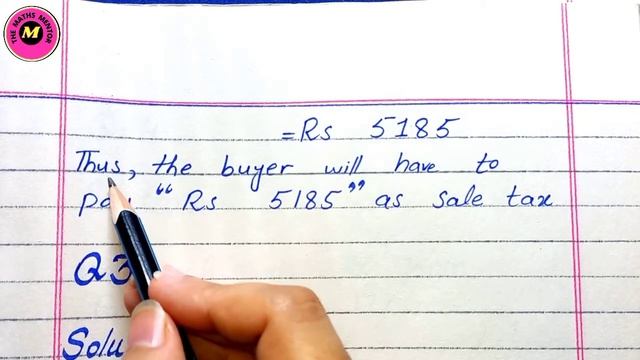 THE MATHS MENTOR
M
= Rs 5185
Thus, the buyer will have to
pay “Rs 5185” as sale tax
Q3
Solu